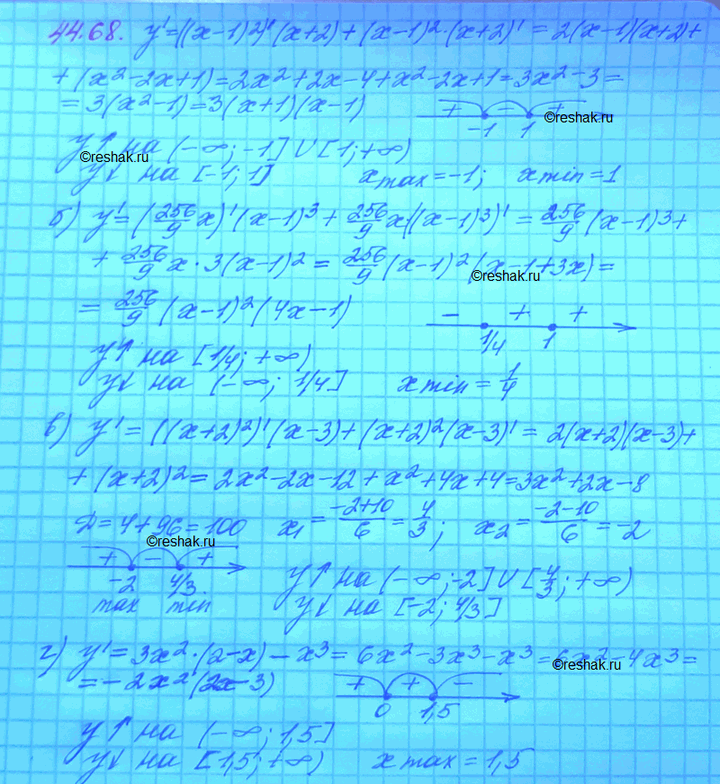 44.68. y'=((x-1)²)'(x+2)+(x-1)²·(x+2)' = 2(x-1)(x+2)+
+(x²-2x+1)=2x²+2x-4+x²-2x+1=3x²-3=
=3(x²-1)=3(x+1)(x-1) + - +
-1 1 ©reshak.ru
y↑ на (-∞;-1]∪[1;+∞)
©reshak.ru
y↓ на [-1;1] xmax=-1; xmin=1
б) y'=(256/9 x)'(x-1)³+256/9 x((x-1)³)' = 256/9 (x-1)³+
+ 256/9 x·3(x-1)² = 256/9 (x-1)²(x-1+3x)=
©reshak.ru
= 256/9 (x-1)²(4x-1) - + +
1/4 1
y↑ на [1/4;+∞)
y↓ на (-∞; 1/4] xmin = 1/4
в) y' = ((x+2)²)'(x-3)+(x+2)²(x-3)' = 2(x+2)(x-3)+
+(x+2)²= 2x²-2x-12+x²+4x+4=3x²+2x-8
D=4+96=100 x₁=(-2+10)/6=4/3; x₂=(-2-10)/6=-2
©reshak.ru
+ - +
-2 4/3
max min
y↑ на (-∞;-2]∪[4/3;+∞)
y↓ на [-2;4/3]
г) y'=3x²·(2-x)-x³=6x²-3x³-x³=6x²-4x³=
©reshak.ru
=-2x²(2x-3) + + -
0 1,5
y↑ на (-∞;1,5]
y↓ на [1,5;+∞) xmax=1,5